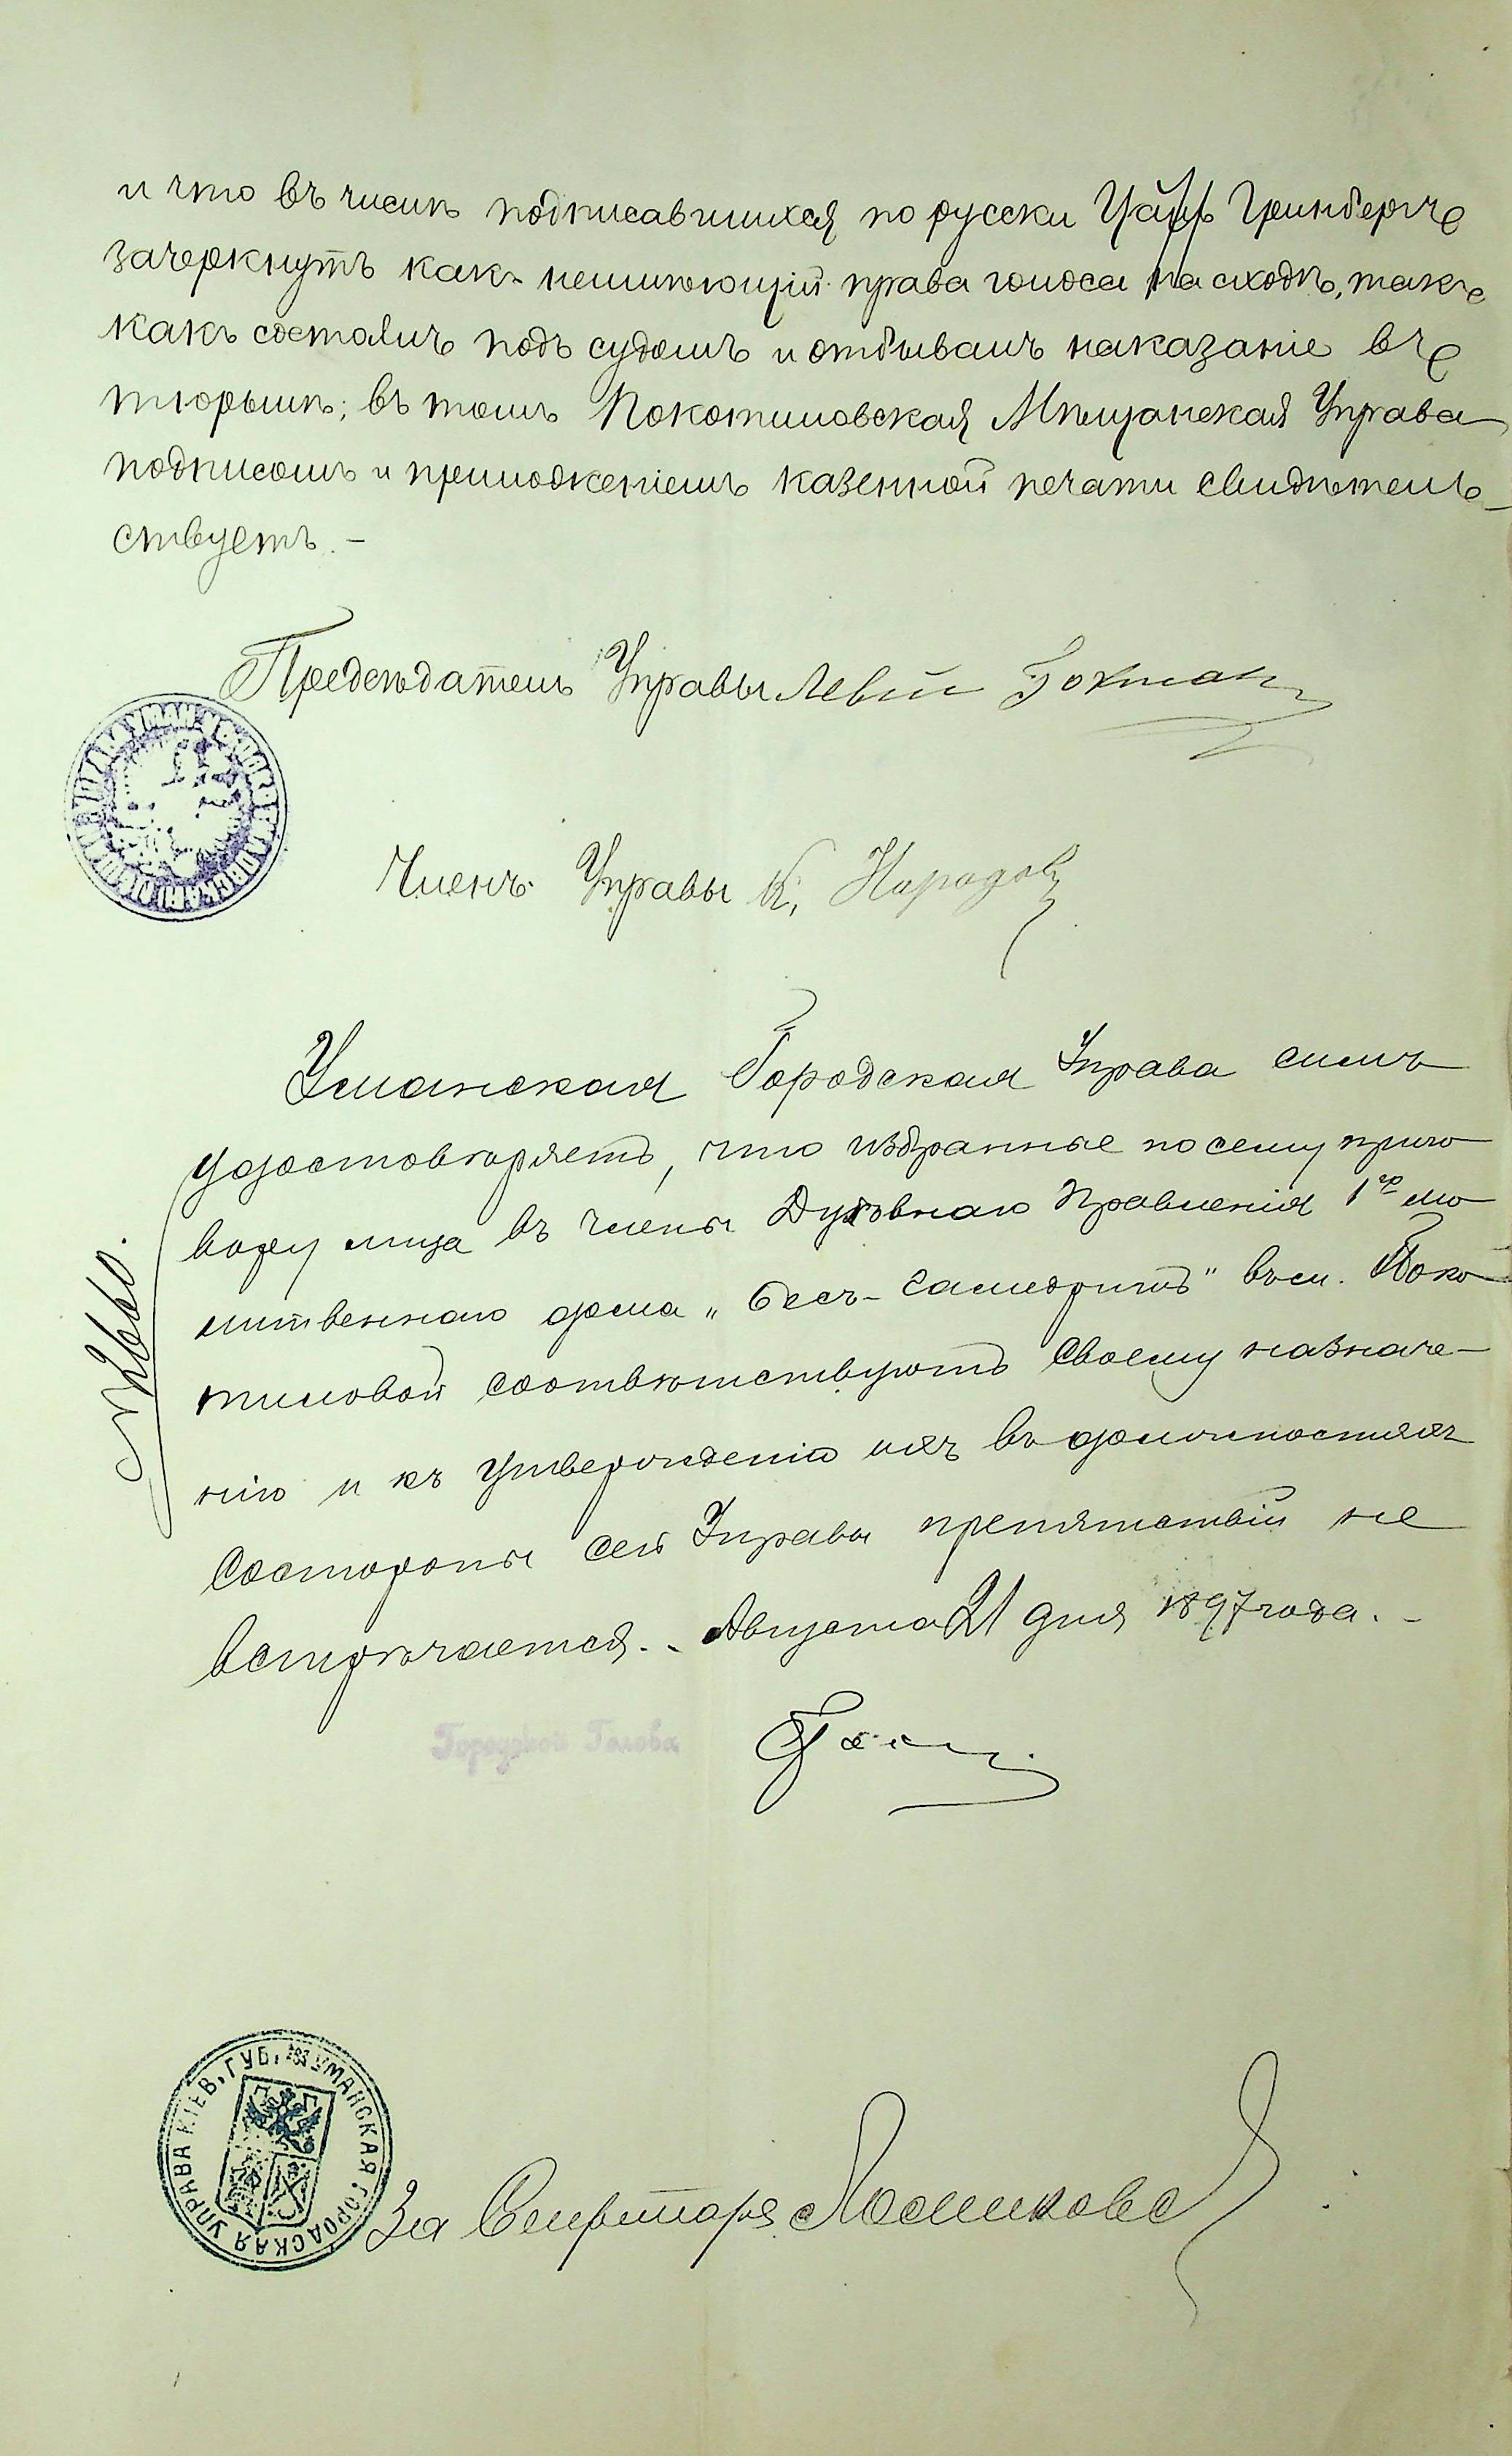 и что въ числѣ подписавшихся по русски Гринбергъ
зачеркнутъ какъ неимѣющій права голоса на сходѣ, такъ
какъ состоялъ подъ судомъ и отбывалъ наказаніе въ
тюрьмѣ; въ томъ Покотиловская Мѣщанская Управа
подписомъ и приложеніемъ казенной печати свидѣтель-
ствуетъ. -
Предсѣдатель Управы Левій Гохман
Членъ Управы К.
Уманская Городская Управа симъ
удостовѣряетъ, что избранные по сему приго
вору лица въ члены Духовнаго Правленія 1го мо
литвеннаго дома „Бесъ- въ м. Поко
тиловой соотвѣтствуютъ своему назначе-
нію и къ утвержденію ихъ въ должностяхъ
состороны сей Управы препятствій не
встрѣчается. - Августа 21 дня 1897 года. -
№ 2660.
Городской Голова
УМАНСКАЯ ГОРОДСКАЯ УПРАВА КІЕВ. ГУБ.
За Секретаря